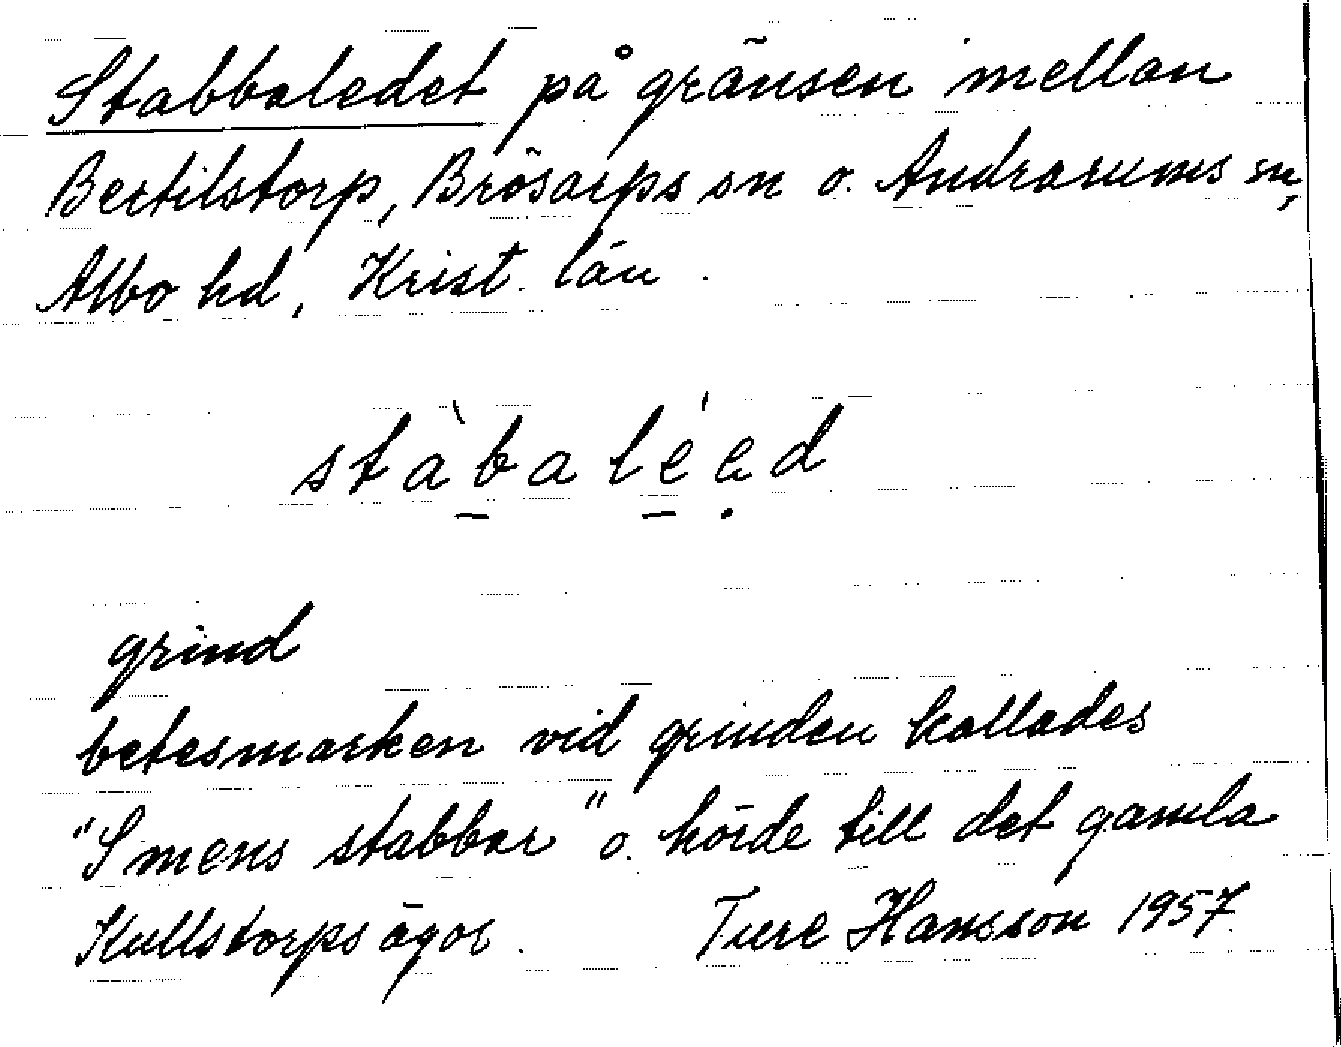 Stabbaledet på gränsen mellan
Bertilstorp, Brösarps sn o. Andrarums sn,
Albo hd, Krist. län.
stàbaléed
grind
betesmarken vid grinden kallades
"Smens stabbar" o. hörde till det gamla
Kullstorps ägor. Ture Hansson 1957.